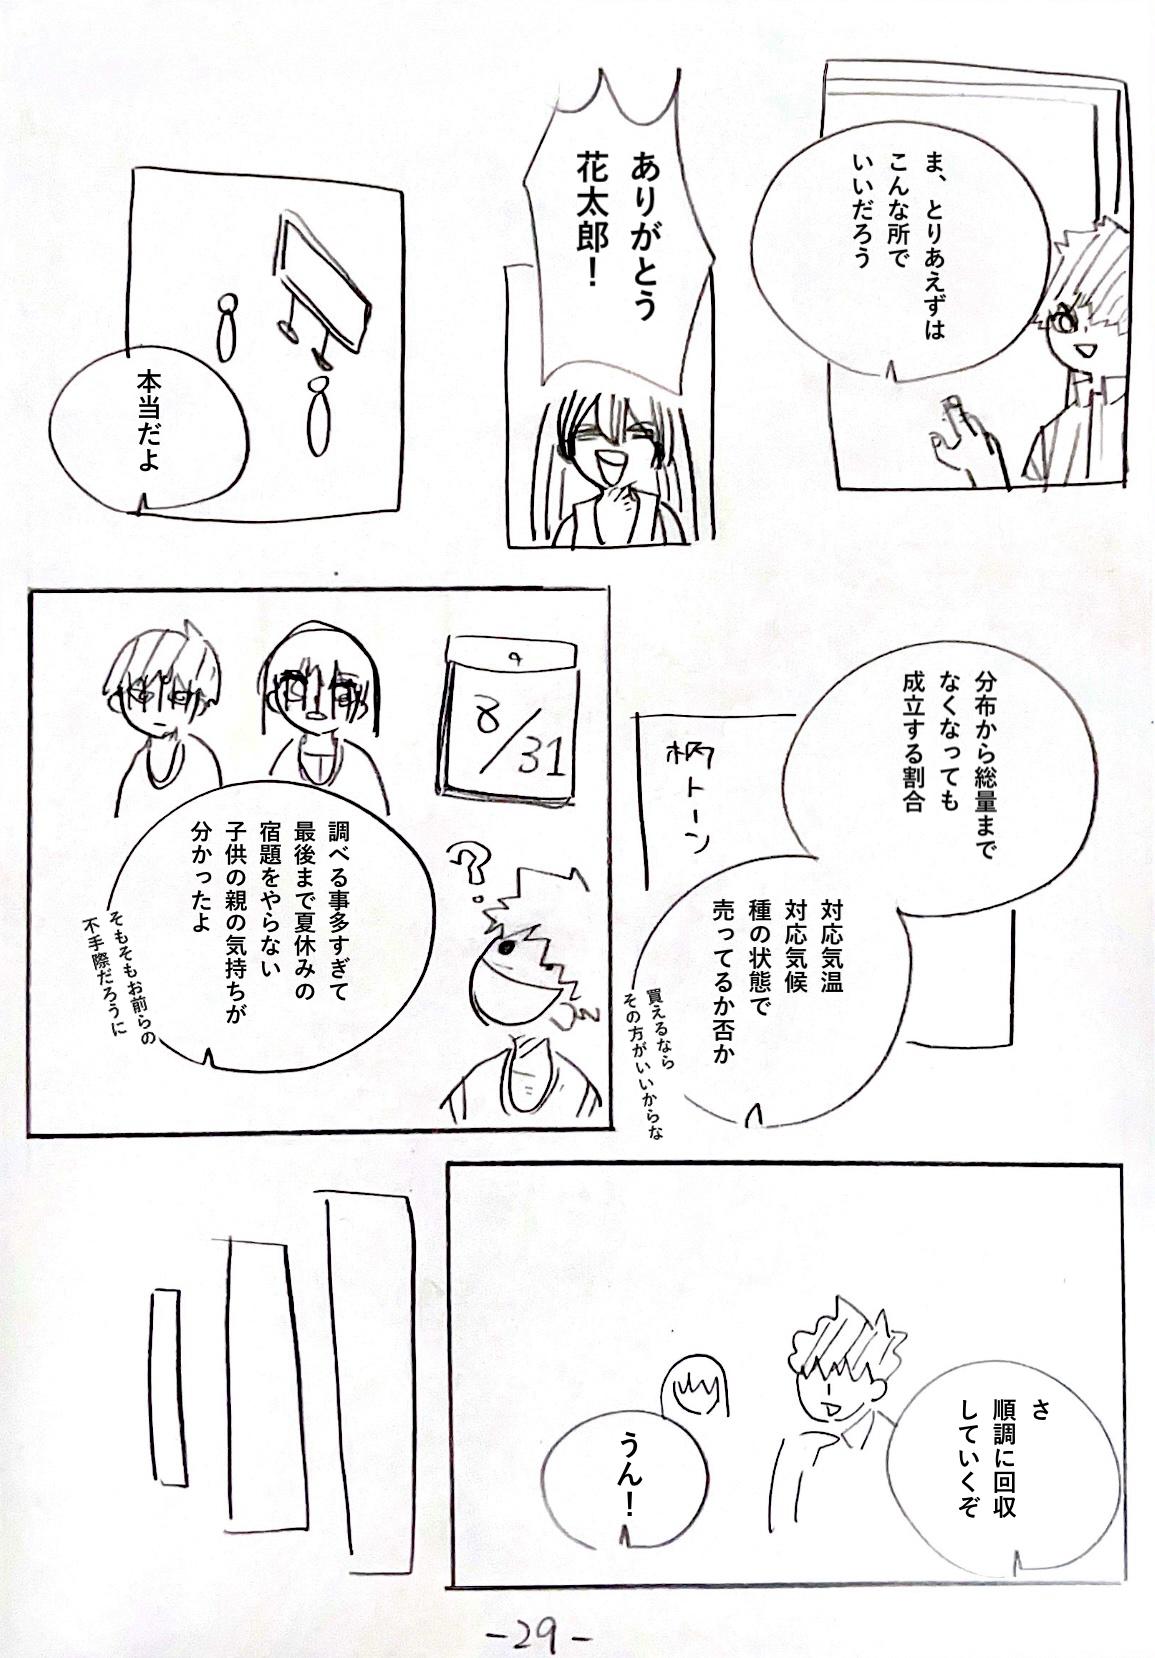 ま、とりあえずは
こんな所で
いいだろう
ありがとう
花太郎！
本当だよ
分布から総量まで
なくなっても
成立する割合
柄トーン
対応気温
対応気候
種の状態で
売ってるか否か
買えるなら
その方がいいからな
8/31
?
調べる事多すぎて
最後まで夏休みの
宿題をやらない
子供の親の気持ちが
分かったよ
そもそもお前らの
不手際だろうに
さ
順調に回収
していくぞ
うん！
-29-